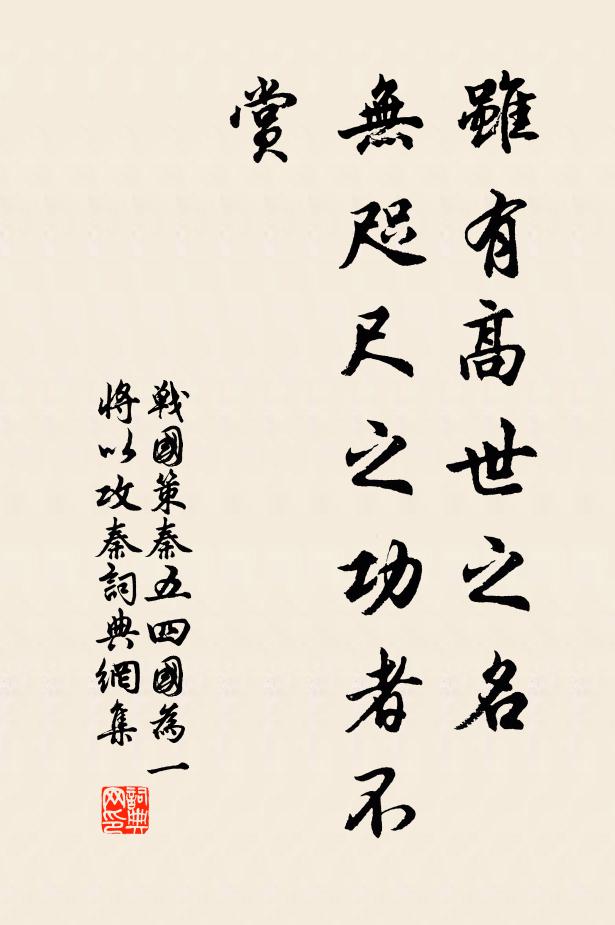 雖有高世之名
無咫尺之功者不
賞
戰國策秦五四國為一
將以攻秦詞典網集
詞典
网印